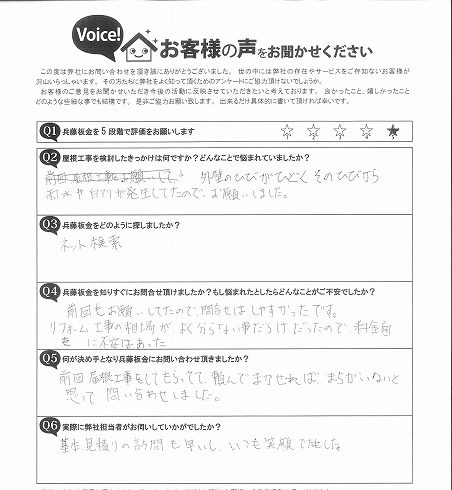 Voice!
お客様の声をお聞かせください
この度は弊社にお問い合わせを頂き誠にありがとうございました。 世の中には弊社の存在やサービスをご存知ないお客様が
沢山いらっしゃいます。 その方たちに弊社をよく知って頂くためのアンケートにご協力頂けないでしょうか。
お客様のご意見をお聞かせいただき今後の活動に反映させていただきたいと考えております。 良かったこと、嬉しかったこと
どのような些細な事でも結構です。 是非ご協力お願い致します。 出来るだけ具体的に書いて頂ければ幸いです。
Q1 兵藤板金を5段階で評価をお願いします
☆1 ☆2 ☆3 ☆4 ★5
Q2 屋根工事を検討したきっかけは何ですか？どんなことで悩まれていましたか？
前回屋根工事をお願いして 外壁のひびがひどく そのひびから
雨水や白アリが発生してたので、お願いしました。
Q3 兵藤板金をどのように探しましたか？
ネット検索
Q4 兵藤板金を知りすぐにお問合せ頂けましたか？もし悩まれたとしたらどんなことがご不安でしたか？
前回もお願いしてたので、問合せは しやすかったです。
リフォーム工事の相場が、よく分らない事だらけ だったので、料金面
に不安はあった
Q5 何が決め手となり兵藤板金にお問い合わせ頂きましたか？
前回 屋根工事をしてもらってて、頼んでまかせれば、まちがいないと
思って、問い合わせしました。
Q6 実際に弊社担当者がお伺いしていかがでしたか？
基本、見積りの訪問も早いし、いつも笑顔でした。